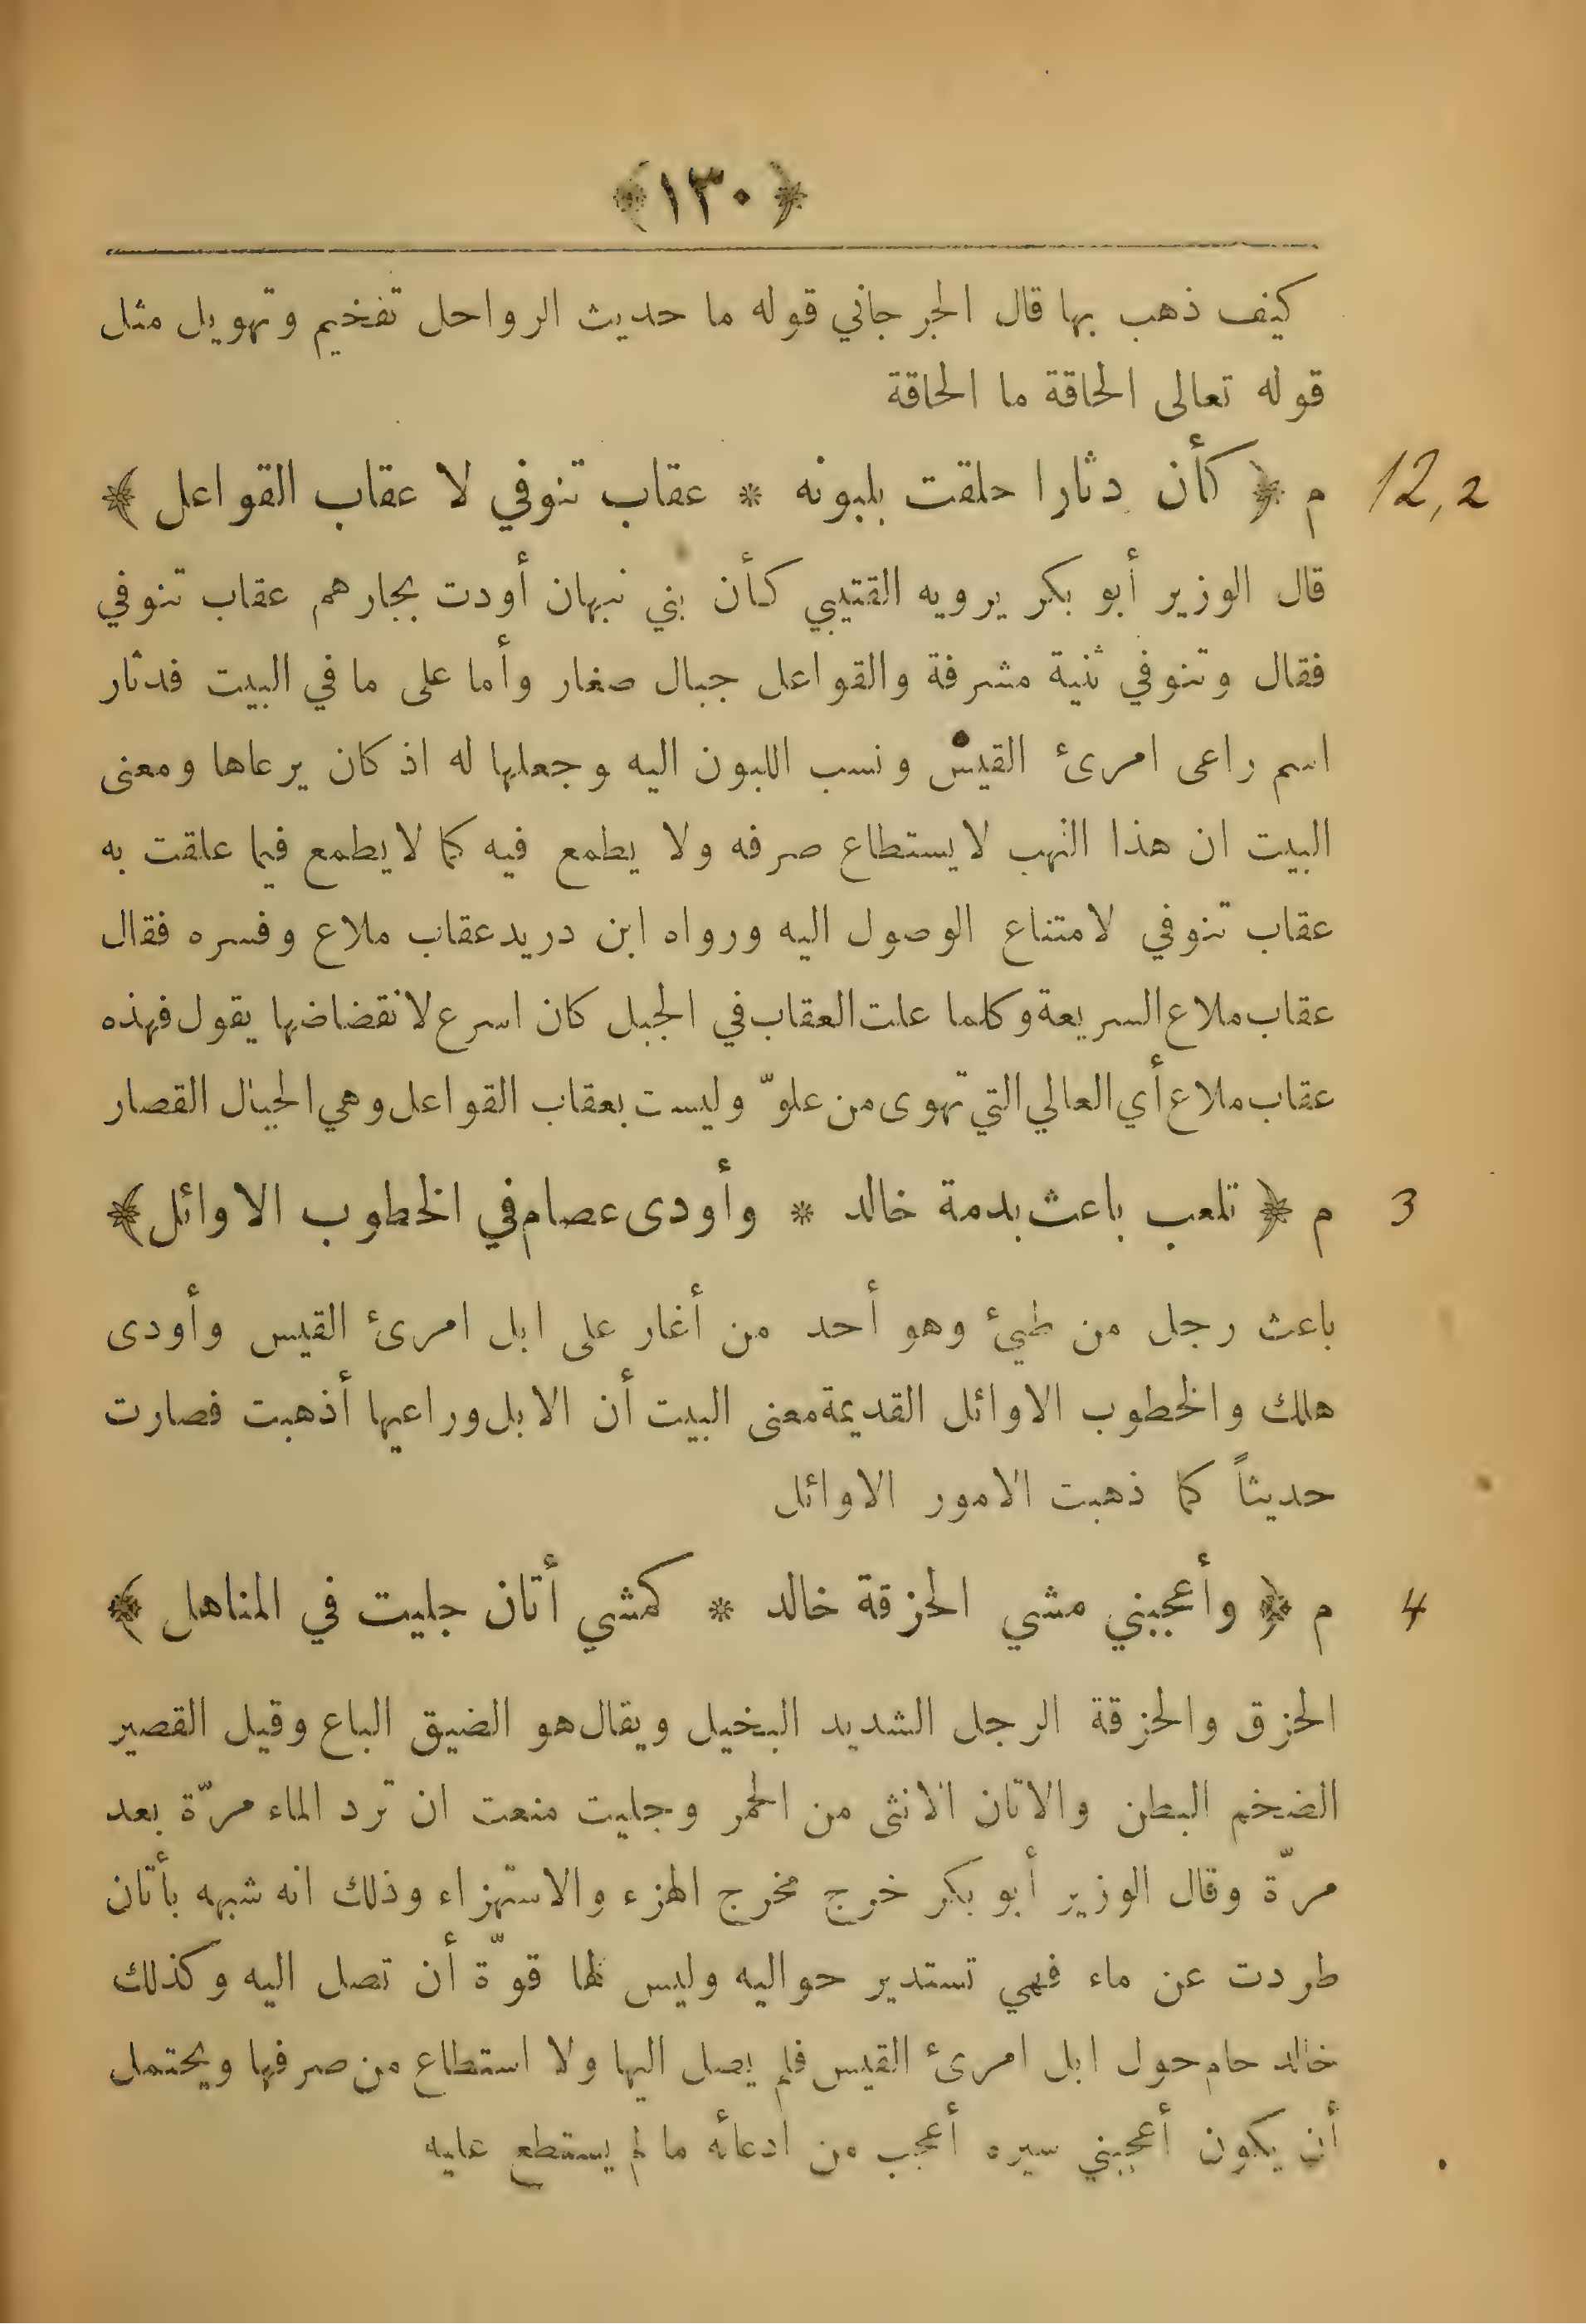 ﴿١٣٠﴾
كيف ذهب بها قال الجرجاني قوله ما حديث الرواحل تفخيم وتهويل مثل
قوله تعالى الحاقة ما الحاقة
12,2 م ﴿ كأن دثارا حلقت بلبونه * عقاب تنوفي لا عقاب القواعل ﴾
قال الوزير أبو بكر يرويه القتيبي كأن بني نبهان أودت بجارهم عقاب تنوفي
فقال وتنوفي ثنية مشرفة والقواعل جبال صغار وأما على ما في البيت فدثار
اسم راعى امرئ القيس ونسب اللبون اليه وجعلها له اذ كان يرعاها ومعنى
البيت ان هذا النهب لا يستطاع صرفه ولا يطمع فيه كما لا يطمع فيما علقت به
عقاب تنوفي لامتناع الوصول اليه ورواه ابن دريد عقاب ملاع وفسره فقال
عقاب ملاع السريعة وكلما علت العقاب في الجبل كان اسرع لانقضاضها يقول فهذه
عقاب ملاع أي العالي التي تهوى من علوّ وليست بعقاب القواعل وهي الجبال القصار
3 م ﴿ تلعب باعث بذمة خالد * وأودى عصام في الخطوب الاوائل ﴾
باعث رجل من طيئ وهو أحد من أغار على ابل امرئ القيس وأودى
هلك والخطوب الاوائل القديمة معنى البيت أن الابل وراعيها أذهبت فصارت
حديثاً كما ذهبت الامور الاوائل
4 م ﴿ وأعجبني مشي الحزقة خالد * كمشي أتان جليت في المناهل ﴾
الحزق والحزقة الرجل الشديد البخيل ويقال هو الضيق الباع وقيل القصير
الضخم البطن والاتان الانثى من الحمر وجليت منعت ان ترد الماء مرّة بعد
مرّة وقال الوزير أبو بكر خرج مخرج الهزء والاستهزاء وذلك انه شبهه بأتان
طردت عن ماء فهي تستدير حواليه وليس لها قوّة أن تصل اليه وكذلك
خالد حام حول ابل امرئ القيس فلم يصل اليها ولا استطاع من صرفها ويحتمل
أن يكون أعجبني سيره أعجب من ادعائه ما لم يستطع عليه